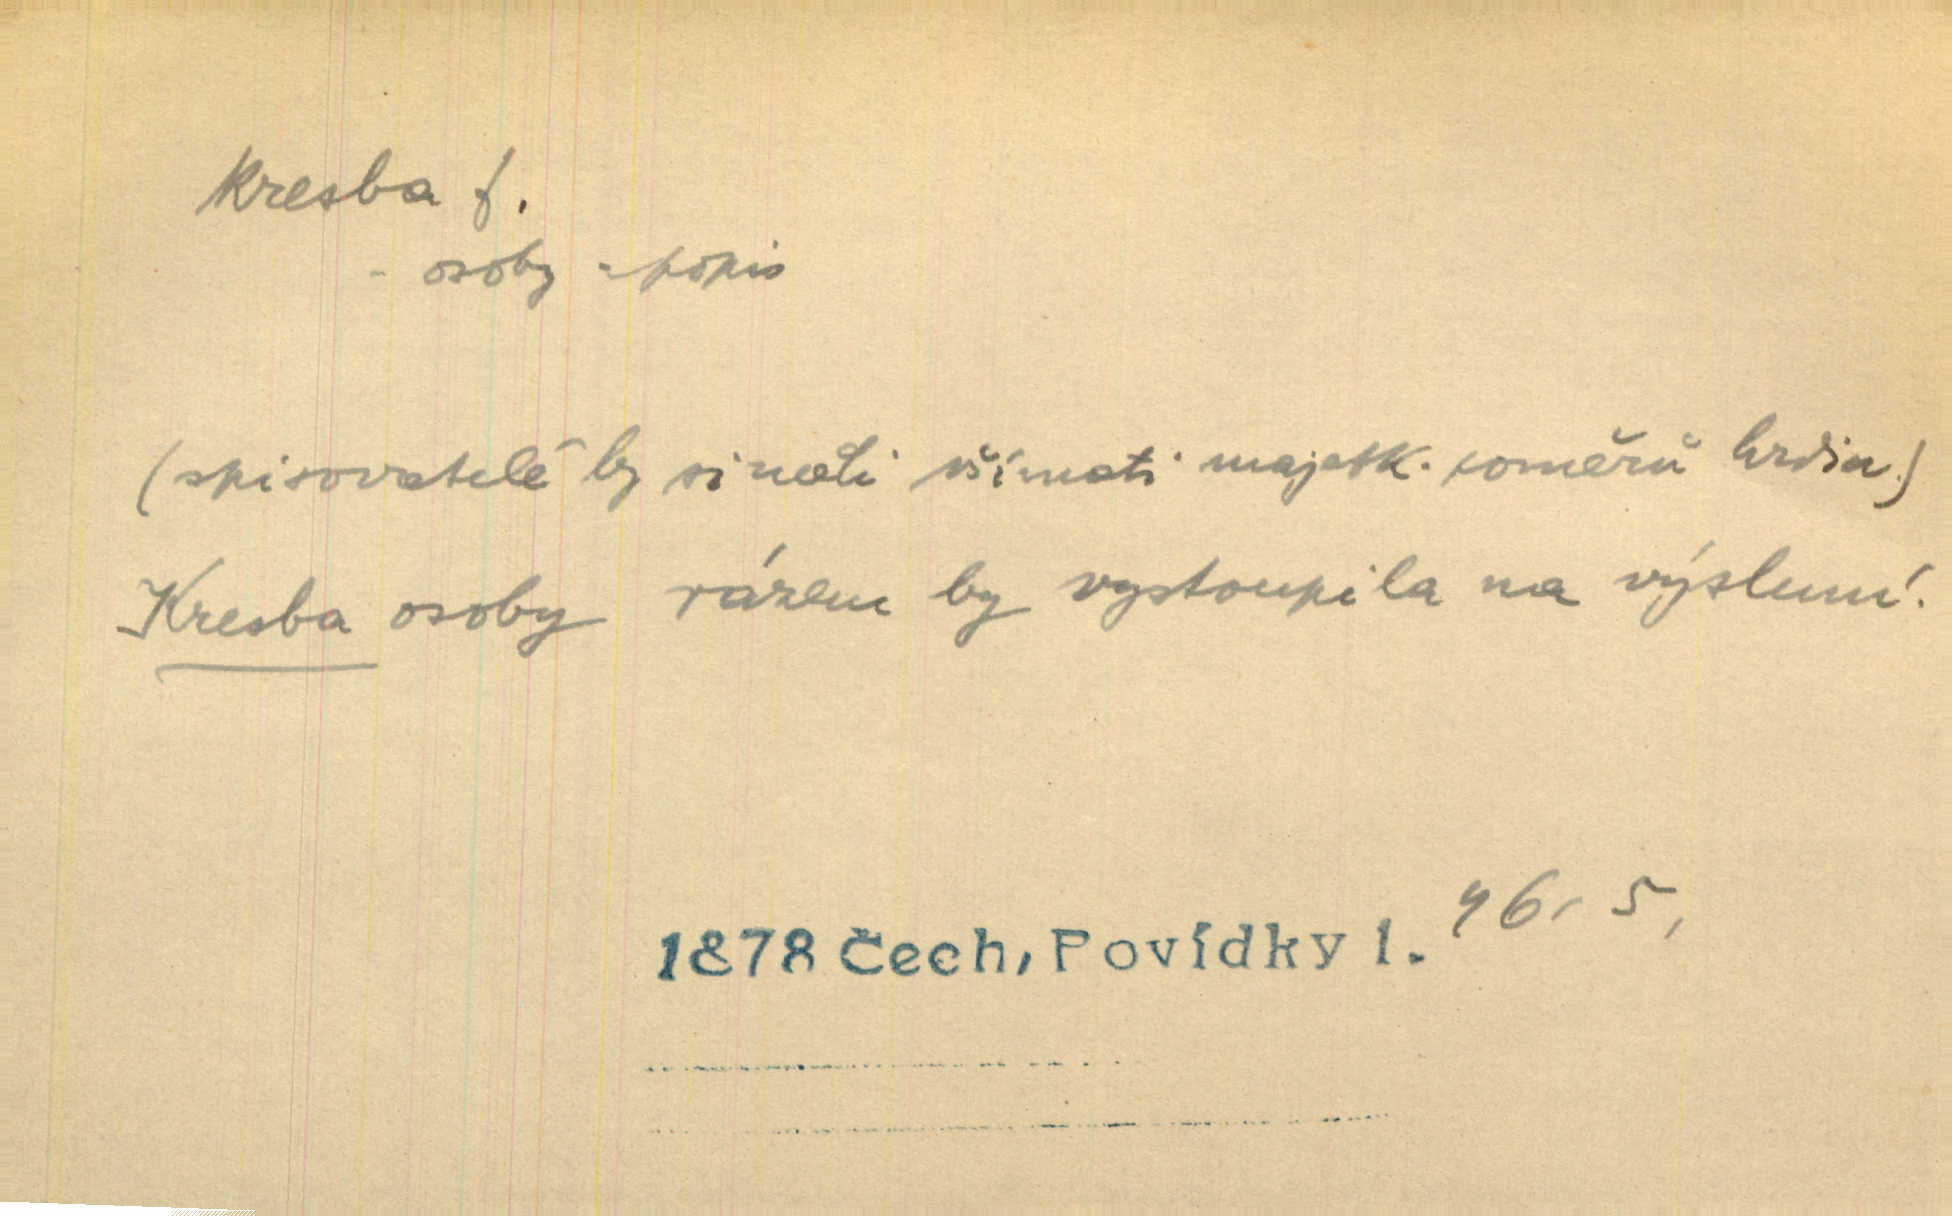 Kresba f.
- osoby = popis
(spisovatelé by si měli všímati majetk. poměrů hrdin.)
Kresba osoby rázem by vystoupila na výsluní.
1878 Čech, Povídky I. 46, 5,